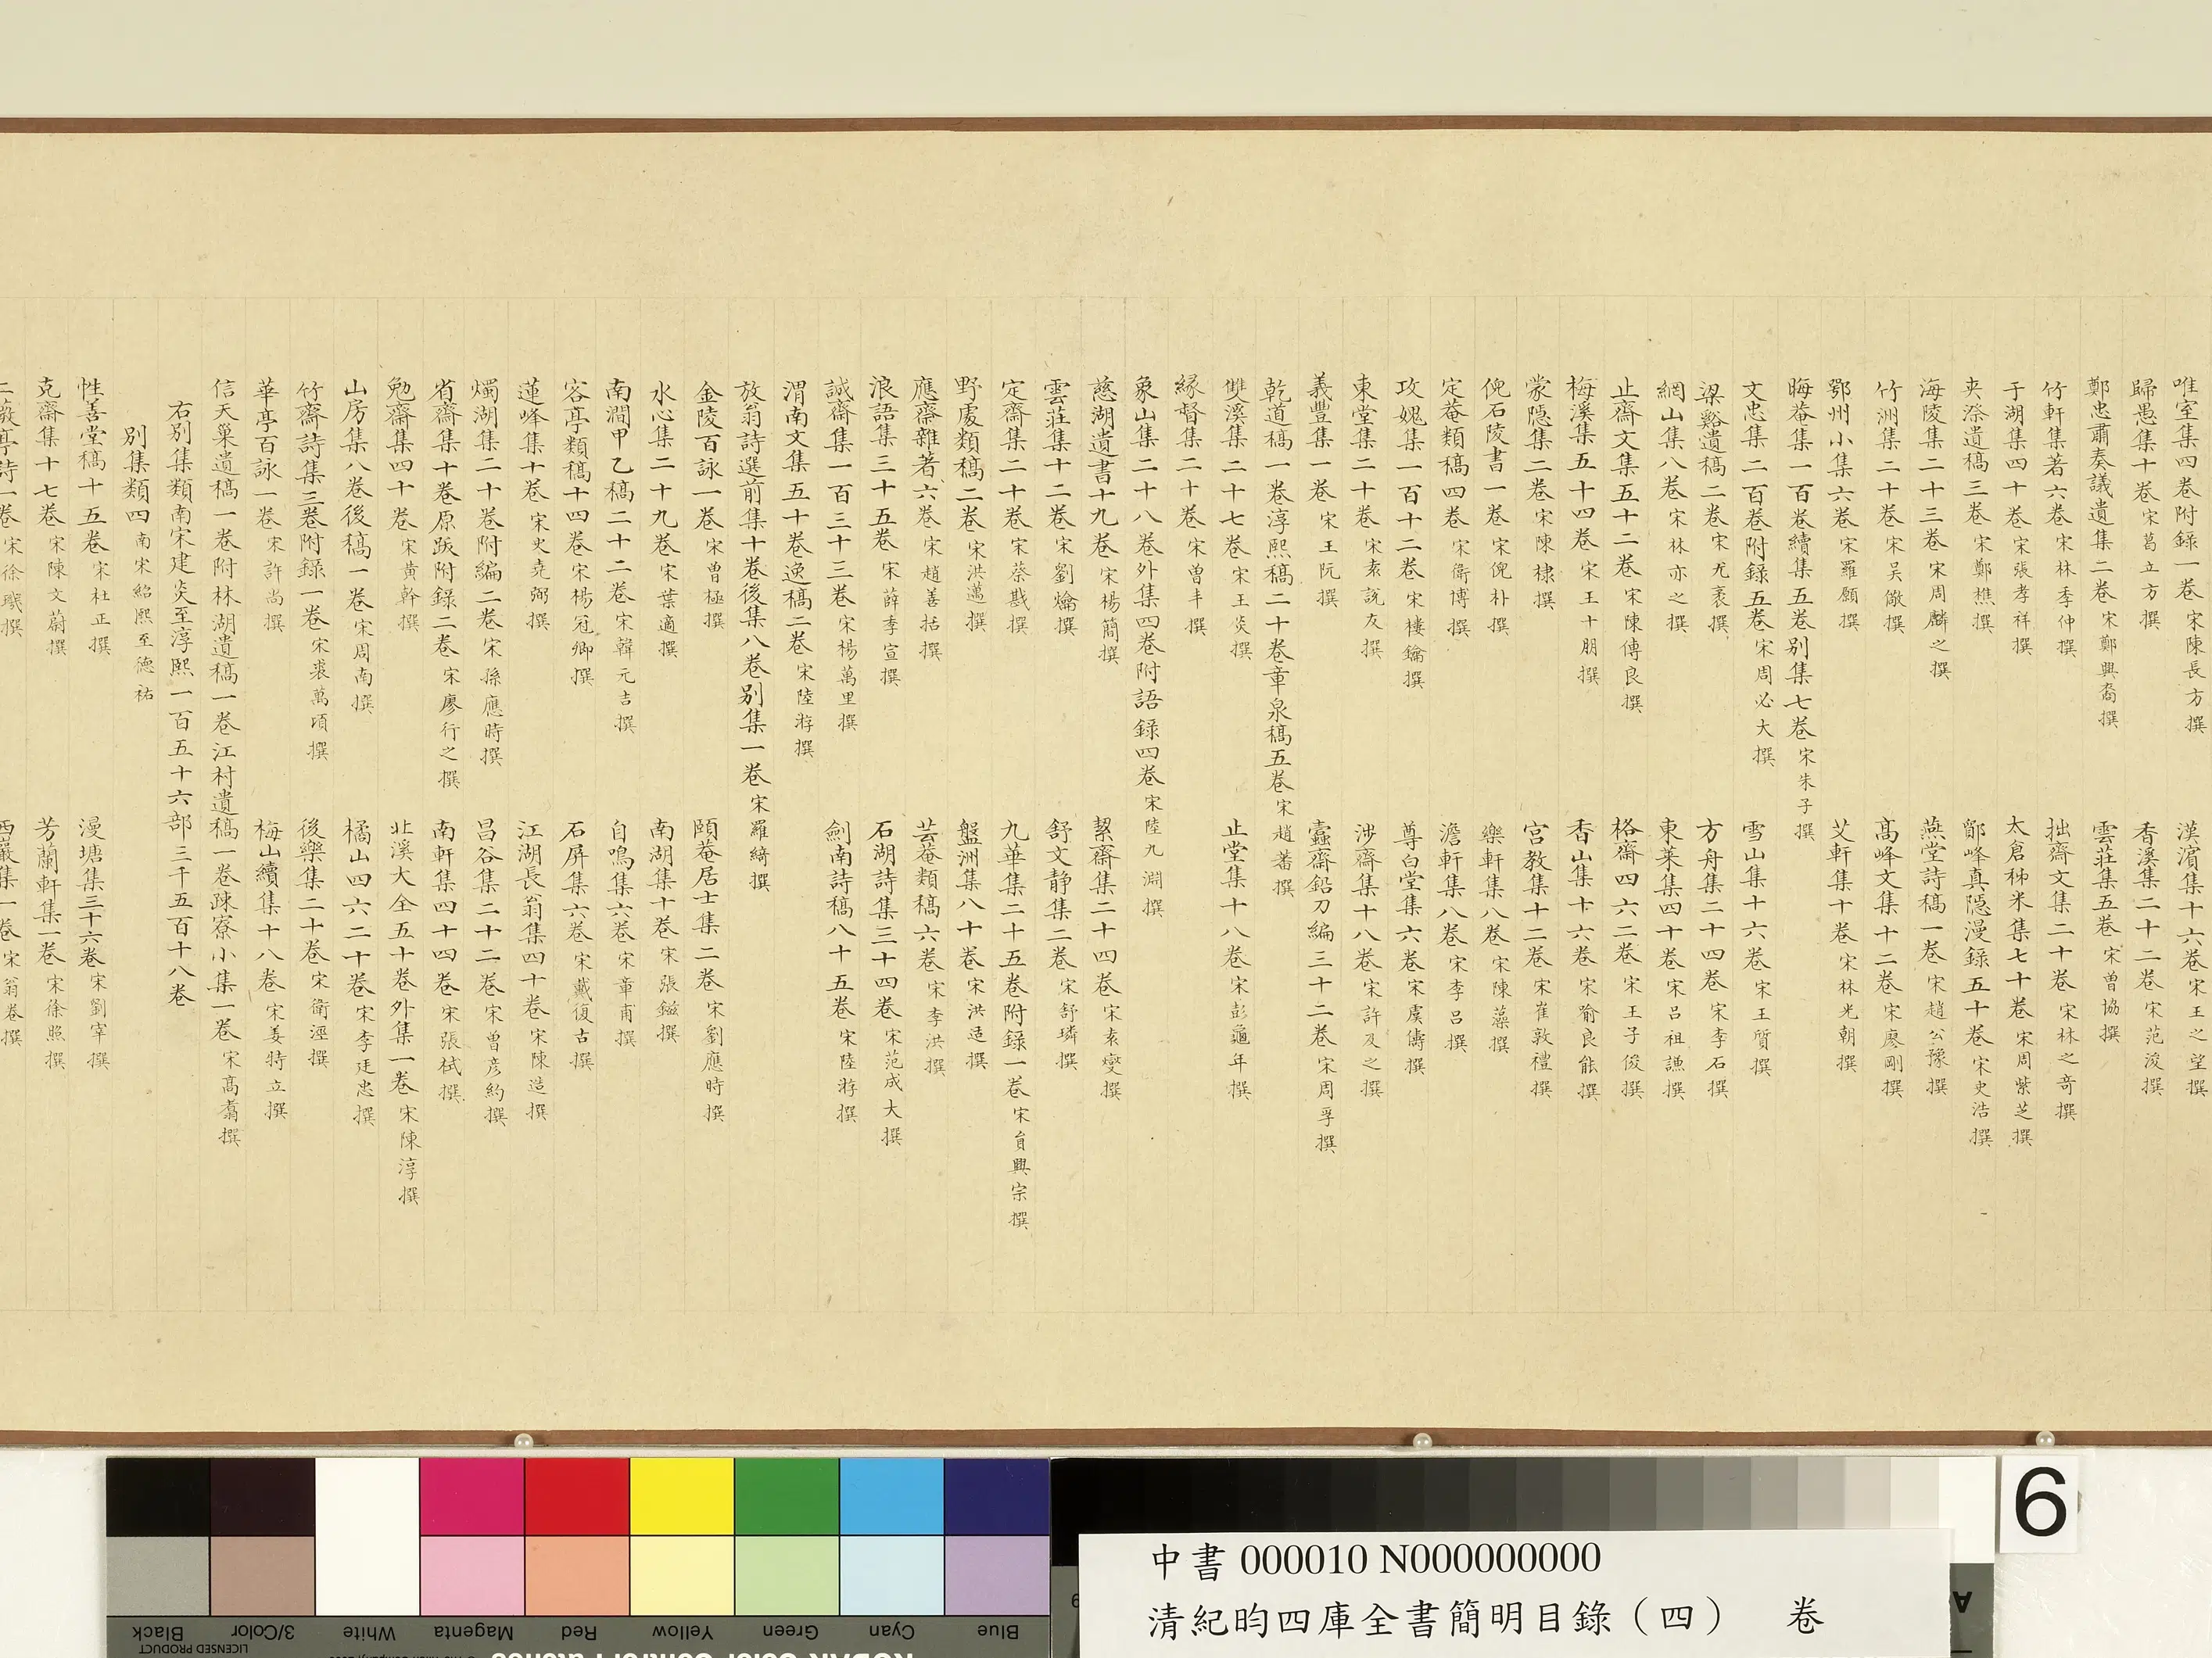 唯室集四卷附錄一卷宋陳長方撰 漢濱集十六卷宋王之望撰
歸愚集十卷宋葛立方撰 香溪集二十二卷宋范浚撰
鄭忠肅奏議遺集二卷宋鄭興裔撰 雲莊集五卷宋曾協撰
竹軒集著六卷宋林季仲撰 拙齋文集二十卷宋林之奇撰
于湖集四十卷宋張孝祥撰 太倉稊米集七十卷宋周紫芝撰
夾漈遺稿三卷宋鄭樵撰 鄮峰真隱漫錄五十卷宋史浩撰
海陵集二十三卷宋周麟之撰 燕堂詩稿一卷宋趙公豫撰
竹洲集二十卷宋吳儆撰 高峰文集十二卷宋廖剛撰
鄂州小集六卷宋羅願撰 艾軒集十卷宋林光朝撰
晦菴集一百卷續集五卷別集七卷宋朱子撰
文忠集二百卷附錄五卷宋周必大撰 雪山集十六卷宋王質撰
梁谿遺稿二卷宋尤袤撰 方舟集二十四卷宋李石撰
網山集八卷宋林亦之撰 東萊集四十卷宋呂祖謙撰
止齋文集五十二卷宋陳傅良撰 格齋四六二卷宋王子俊撰
梅溪集五十四卷宋王十朋撰 香山集十六卷宋喻良能撰
蒙隱集二卷宋陳棣撰 宮教集十二卷宋崔敦禮撰
倪石陵書一卷宋倪朴撰 樂軒集八卷宋陳藻撰
定菴類稿四卷宋衛博撰 澹軒集八卷宋李呂撰
攻媿集一百十二卷宋樓鑰撰 尊白堂集六卷宋虞儔撰
東堂集二十卷宋袁說友撰 涉齋集十八卷宋許及之撰
義豐集一卷宋王阮撰 蠹齋鉛刀編三十二卷宋周孚撰
乾道稿一卷淳熙稿二十卷章泉稿五卷宋趙蕃撰
雙溪集二十七卷宋王炎撰 止堂集十八卷宋彭龜年撰
緣督集二十卷宋曾丰撰
象山集二十八卷外集四卷附語錄四卷宋陸九淵撰
慈湖遺書十九卷宋楊簡撰 絜齋集二十四卷宋袁燮撰
雲莊集十二卷宋劉爚撰 舒文靜集二卷宋舒璘撰
定齋集二十卷宋蔡戡撰 九華集二十五卷附錄一卷宋員興宗撰
野處類稿二卷宋洪邁撰 盤洲集八十卷宋洪适撰
應齋雜著六卷宋趙善括撰 芸菴類稿六卷宋李洪撰
浪語集三十五卷宋薛季宣撰 石湖詩集三十四卷宋范成大撰
誠齋集一百三十三卷宋楊萬里撰 劍南詩稿八十五卷宋陸游撰
渭南文集五十卷逸稿二卷宋陸游撰
放翁詩選前集十卷後集八卷別集一卷宋羅綺撰
金陵百詠一卷宋曾極撰 頤菴居士集二卷宋劉應時撰
水心集二十九卷宋葉適撰 南湖集十卷宋張鎡撰
南澗甲乙稿二十二卷宋韓元吉撰 自鳴集六卷宋章甫撰
客亭類稿十四卷宋楊冠卿撰 石屏集六卷宋戴復古撰
蓮峰集十卷宋史堯弼撰 江湖長翁集四十卷宋陳造撰
燭湖集二十卷附編二卷宋孫應時撰 昌谷集二十二卷宋曾彥約撰
省齋集十卷原跋附錄二卷宋廖行之撰 南軒集四十四卷宋張栻撰
勉齋集四十卷宋黃榦撰 北溪大全五十卷外集一卷宋陳淳撰
山房集八卷後稿一卷宋周南撰 橘山四六二十卷宋李廷忠撰
竹齋詩集三卷附錄一卷宋裘萬頃撰 後樂集二十卷宋衛涇撰
華亭百詠一卷宋許尚撰 梅山續集十八卷宋姜特立撰
信天巢遺稿一卷附林湖遺稿一卷江村遺稿一卷疎寮小集一卷宋高翥撰
右別集類南宋建炎至淳熙一百五十六部三千五百十八卷
別集類四南宋紹熙至德祐
性善堂稿十五卷宋杜正撰 漫塘集三十六卷宋劉宰撰
克齋集十七卷宋陳文蔚撰 芳蘭軒集一卷宋徐照撰
二薇亭詩一卷宋徐璣撰 西巖集一卷宋翁卷撰
6
中書 000010 N000000000
清紀昀四庫全書簡明目錄（四） 卷
Black 3/Color White Magenta Red Yellow Green Cyan Blue
LICENSED PRODUCT
A